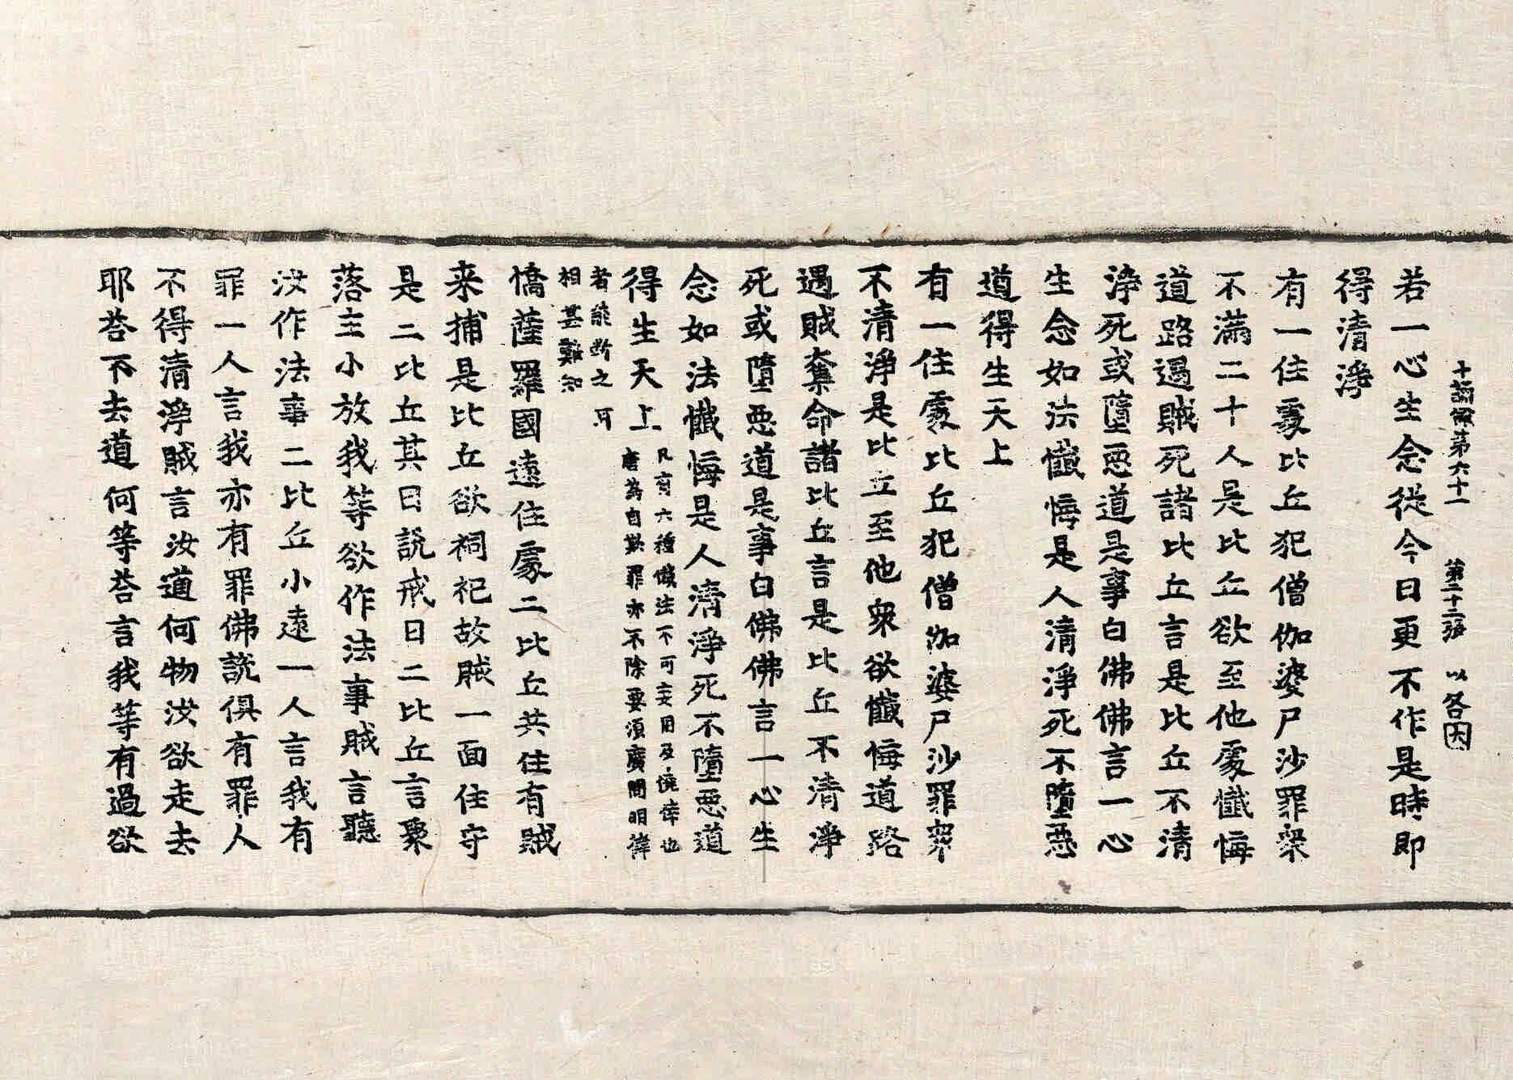 十誦律第六十一 第二十二張 以各因
若一心生念從今日更不作是時即
得清淨
有一住處比丘犯僧伽婆尸沙罪衆
不滿二十人是比丘欲至他處懺悔
道路遇賊死諸比丘言是比丘不清
淨死或墮惡道是事白佛佛言一心
生念如法懺悔是人清淨死不墮惡
道得生天上
有一住處比丘犯僧伽婆尸沙罪衆
不清淨是比丘至他衆欲懺悔道路
遇賊奪命諸比丘言是比丘不清淨
死或墮惡道是事白佛佛言一心生
念如法懺悔是人清淨死不墮惡道
得生天上
凡有六種懺法不可妄用及僥倖也
唐爲自欺罪亦不除要須廣問明律
者能斷之耳
相甚難知
憍薩羅國遠住處二比丘共住有賊
来捕是比丘欲祠祀故賊一面住守
是二比丘其日說戒日二比丘言聚
落主小放我等欲作法事賊言聽
汝作法事二比丘小遠一人言我有
罪一人言我亦有罪佛說俱有罪人
不得清淨賊言汝道何物汝欲走去
耶荅不去道何等荅言我等有過欲